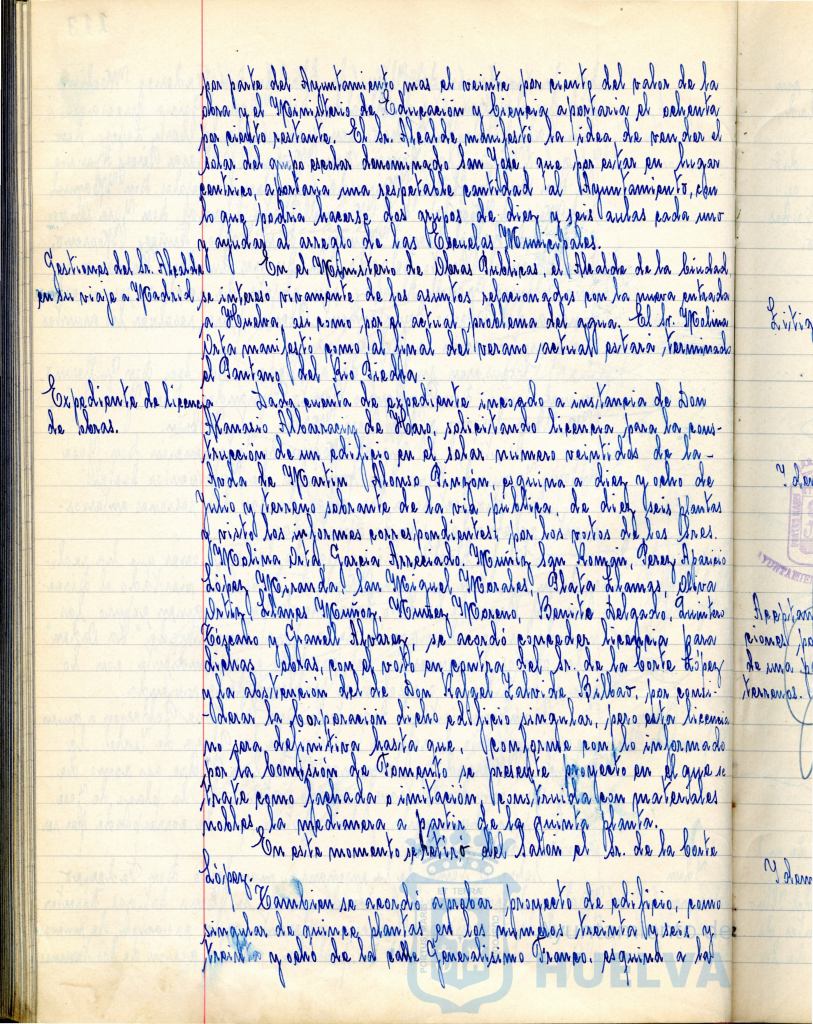 por parte del Ayuntamiento mas el veinte por ciento del valor de la
obra y el Ministerio de Educación y Ciencia aportaria el ochenta
por ciento restante. El Sr. Alcalde manifestó la idea de vender el
solar del grupo escolar denominado San José, que por estar en lugar
centrico, aportaria una respetable cantidad al Ayuntamiento, con
lo que podria hacerse dos grupos de diez y seis aulas cada uno
y ayudar al arreglo de las Escuelas Municipales.
Gestiones del Sr. Alcalde
en su viaje a Madrid
En el Ministerio de Obras Publicas, el Alcalde de la Ciudad,
se interesó vivamente de los asuntos relacionados con la nueva entrada
a Huelva, asi como por el actual problema del agua. El Sr. Molina
Orta manifestó como al final del verano actual estará terminado
el Pantano del Rio Piedra.
Expediente de licencia
de obras.
Dada cuenta de expediente incoado a instancia de Don
Atanasio Albarracin de Haro, solicitando licencia para la cons-
trucción de un edificio en el solar numero veintidos de la
Avda de Martin Alonso Pinzon, esquina a diez y ocho de
Julio y terreno sobrante de la via publica, de diez y seis plantas
y vistos los informes correspondientes, por los votos de los Sres.
Molina Orta, Garcia Arreciado, Muñiz San Roman, Perez Aparicio
López Miranda, San Miguel Morales, Plata Llamas, Oliva
Ortiz, Llanes Muñoz, Nuñez Moreno, Benito Delgado, Quintero
Toscano y Granell Alvarez, se acordó conceder licencia para
dichas obras, con el voto en contra del Sr. de la Corte López
y la abstención del de Don Rafael Zalvide Bilbao, por consi-
derar la Corporación dicho edificio singular, pero esta licencia
no sera definitiva hasta que, conforme con lo informado
por la Comisión de Fomento se presente proyecto en el que se
trate como fachada o imitación, construida con materiales
nobles la medianera a partir de la quinta planta.
En este momento se retiro del Salón el Sr. de la Corte
López.
Tambien se acordó aprobar proyecto de edificio, como
singular de quince plantas en los numeros treinta y seis y
treinta y ocho de la calle Generalisimo Franco, esquina a la
AYUNTAMIEN
Aceptan
ciones pa
de una pa
terrenos.
Idem
HUELVA